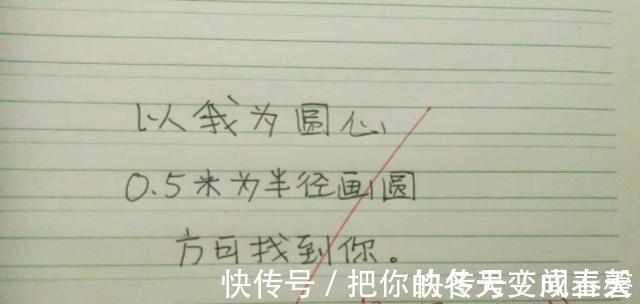 以我为圆心
0.5米为半径画圆
方可找到你。
快传号 / 把你的